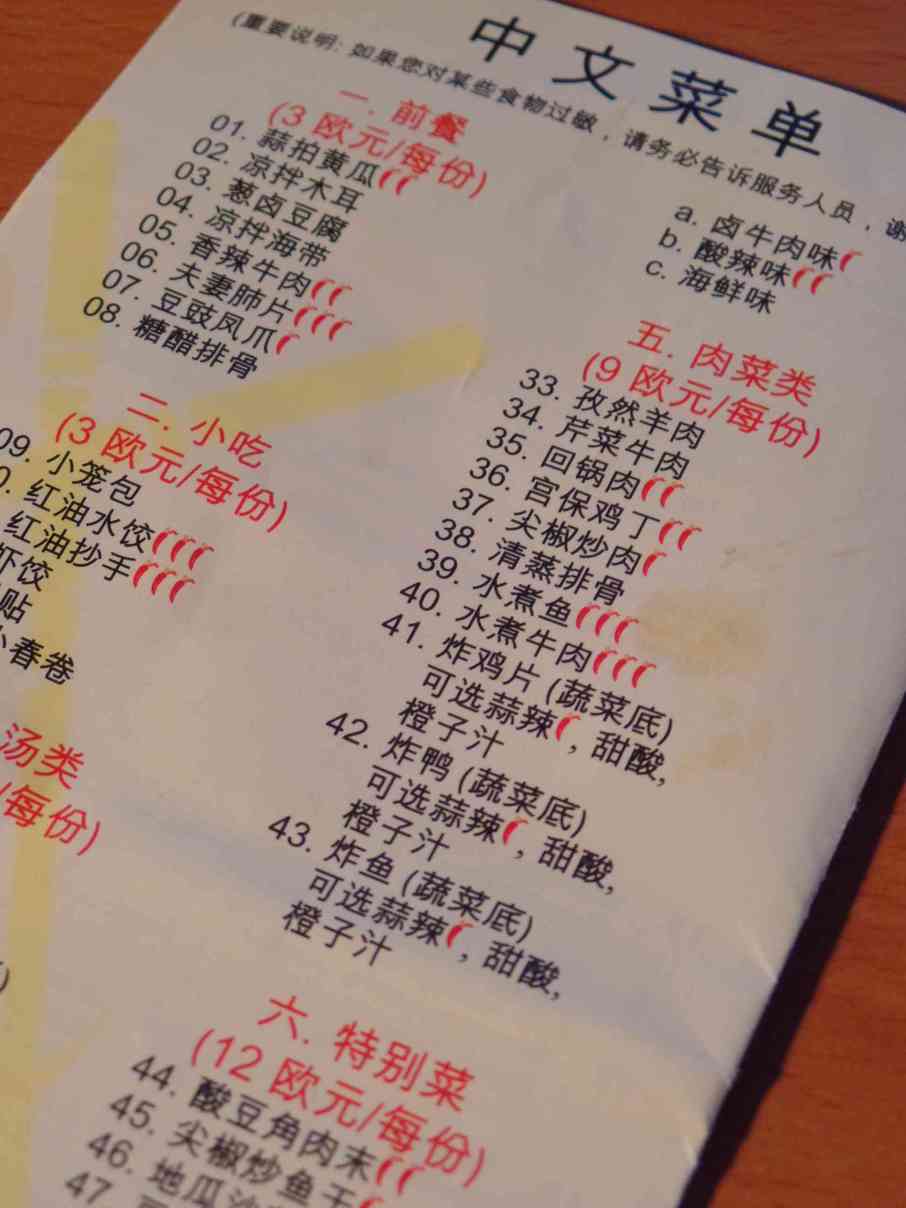 中文菜单
(重要说明: 如果您对某些食物过敏，请务必告诉服务人员，谢
一. 前餐
(3 欧元/每份)
01. 蒜拍黄瓜
02. 凉拌木耳
03. 葱卤豆腐
04. 凉拌海带
05. 香辣牛肉
06. 夫妻肺片
07. 豆豉凤爪
08. 糖醋排骨
二. 小吃
(3 欧元/每份)
09. 小笼包
0. 红油水饺
红油抄手
虾饺
贴
小春卷
汤类
/每份)
a. 卤牛肉味
b. 酸辣味
c. 海鲜味
五. 肉菜类
(9 欧元/每份)
33. 孜然羊肉
34. 芹菜牛肉
35. 回锅肉
36. 宫保鸡丁
37. 尖椒炒肉
38. 清蒸排骨
39. 水煮鱼
40. 水煮牛肉
41. 炸鸡片 (蔬菜底)
可选蒜辣, 甜酸,
橙子汁
42. 炸鸭 (蔬菜底)
可选蒜辣, 甜酸,
橙子汁
43. 炸鱼 (蔬菜底)
可选蒜辣, 甜酸,
橙子汁
六. 特别菜
(12 欧元/每份)
44. 酸豆角肉末
45. 尖椒炒鱼干
46. 地瓜
47.